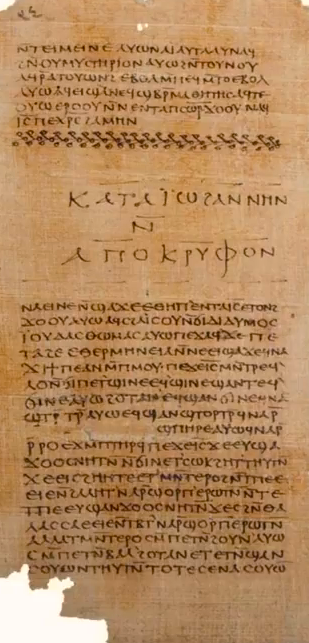 ⲛ̄ⲧⲉⲓⲙⲉⲓⲛⲉ ⲁⲩⲱ ⲛⲁⲓ ⲁⲩⲧⲁⲁⲩ ⲛⲁϥ
ϩⲛ ⲟⲩⲙⲩⲥⲧⲏⲣⲓⲟⲛ ⲁⲩⲱ ϩⲛ̄ⲧⲟⲩⲛⲟⲩ
ⲁϥⲣ̄ⲁⲧⲟⲩⲱⲛϩ ⲉⲃⲟⲗ ⲙ̄ⲡⲉϥⲙ̄ⲧⲟ ⲉⲃⲟⲗ
ⲁⲩⲱ ⲁϥⲉⲓ ϣⲁ ⲛⲉϥϣⲃⲣ̄ⲙⲁⲑⲏⲧⲏⲥ ⲁϥⲧⲉ
ⲟⲩⲱ ⲉⲣⲟⲟⲩ ⲛ̄ⲛⲉⲛⲧⲁⲡⲥⲱ̅ⲣ̅ ϫⲟⲟⲩ ⲛⲁϥ
ⲓ̅ⲥ̅ ⲡⲉⲭ̅ⲣ̅ⲥ̅ ϩⲁⲙⲏⲛ
ⲕⲁⲧⲁ ⲓ̈ⲱϩⲁⲛⲛⲏⲛ
ⲛ̄
ⲁⲡⲟⲕⲣⲩⲫⲟⲛ
ⲛⲁⲉⲓ ⲛⲉ ⲛ̄ϣⲁϫⲉ ⲉⲑⲏⲡ ⲉⲛⲧⲁⲓ̅ⲥ̅ ⲉⲧⲟⲛϩ
ϫⲟⲟⲩ ⲁⲩⲱ ⲁϥⲥϩⲁⲓⲥⲟⲩ ⲛ̄ϭⲓ ⲇⲓⲇⲩⲙⲟⲥ
ⲓ̈ⲟⲩⲇⲁⲥ ⲑⲱⲙⲁⲥ ⲁⲩⲱ ⲡⲉϫⲁϥ ϫⲉ ⲡⲉ
ⲧⲁϩⲉ ⲉⲑⲉⲣⲙⲏⲛⲉⲓⲁ ⲛ̄ⲛⲉⲉⲓϣⲁϫⲉ ϥⲛⲁ
ϫⲓ ϯⲡⲉ ⲁⲛ ⲙ̄ⲡⲙⲟⲩ ⲡⲉϫⲉ ⲓ̅ⲥ̅ ⲙⲛ̄ⲧⲣⲉϥ
ⲗⲟ ⲛ̄ϭⲓ ⲡⲉⲧϣⲓⲛⲉ ⲉϥϣⲓⲛⲉ ϣⲁⲛⲧⲉϥ
ϭⲓⲛⲉ ⲁⲩⲱ ϩⲟⲧⲁⲛ ⲉϥϣⲁⲛϭⲓⲛⲉ ϥⲛⲁ
ϣⲧⲣ̄ⲧⲣ̄ ⲁⲩⲱ ⲉϥϣⲁⲛϣⲧⲟⲣⲧⲣ̄ ϥⲛⲁⲣ̄
ϣⲡⲏⲣⲉ ⲁⲩⲱ ϥⲛⲁⲣ̄
ⲣ̄ⲣⲟ ⲉϫⲙ̄ ⲡⲧⲏⲣϥ ⲡⲉϫⲉ ⲓ̅ⲥ̅ ϫⲉ ⲉⲩϣⲁ
ϫⲟⲟⲥ ⲛⲏⲧⲛ̄ ⲛ̄ϭⲓ ⲛⲉⲧⲥⲱⲕ ϩⲏⲧ ⲑⲏⲩⲧⲛ̄
ϫⲉ ⲉⲓⲥϩⲏⲏⲧⲉ ⲉⲧⲙⲛⲧⲉⲣⲟ ϩⲛ̄ ⲧⲡⲉ ⲉ
ⲉⲓⲉ ⲛ̄ϩⲁⲗⲏⲧ ⲛⲁⲣ̄ ϣⲟⲣⲡ ⲉⲣⲱⲧⲛ̄ ⲛ̄ⲧⲉ
ⲧⲡⲉ ⲉⲩϣⲁⲛϫⲟⲟⲥ ⲛⲏⲧⲛ̄ ϫⲉ ⲥϩⲛ̄ ⲑⲁ
ⲗⲁⲥⲥⲁ ⲉⲉⲓⲉ ⲛ̄ⲧⲃⲧ ⲛⲁⲣ̄ ϣⲟⲣⲡ ⲉⲣⲱⲧⲛ̄
ⲁⲗⲗⲁ ⲧⲙⲛ̄ⲧⲉⲣⲟ ⲥⲙ̄ⲡⲉⲧⲛ̄ϩⲟⲩⲛ ⲁⲩⲱ
ⲥⲙ̄ⲡⲉⲧⲛ̄ⲃⲁⲗ ϩⲟⲧⲁⲛ ⲉⲧⲉⲧⲛ̄ϣⲁⲛ
ⲥⲟⲩⲱⲛ ⲧⲏⲩⲧⲛ̄ ⲧⲟⲧⲉ ⲥⲉⲛⲁⲥⲟⲩⲱ